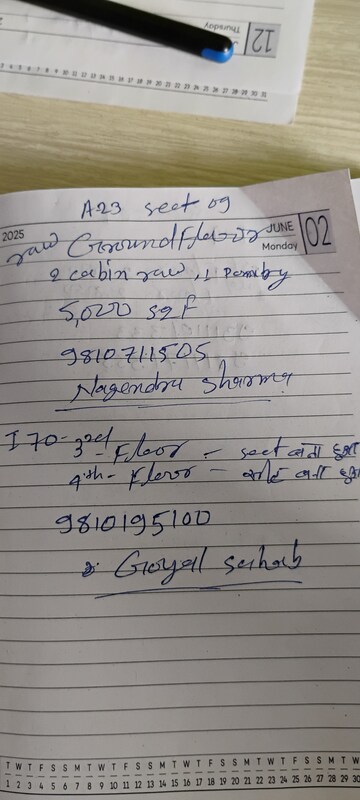 Thursday
12
3 4 5 6 7 8 9 10 11 12 13 14 15 16 17 18 19 20 21 22 23 24 25 26 27 28 29 30 31
A23 sect 09
2025
JUNE
Monday
02
raw Ground Floor
2 cabin raw
5,000 sqF
9810711505
Nagendra Sharma
I 70 - 3rd Floor - sect बना हुआ
4th - Floor - बना हुआ
9810195100
Goyal sahab
T W T F S S M T W T F S S M T W T F S S M T W T F S S M T W
1 2 3 4 5 6 7 8 9 10 11 12 13 14 15 16 17 18 19 20 21 22 23 24 25 26 27 28 29 30